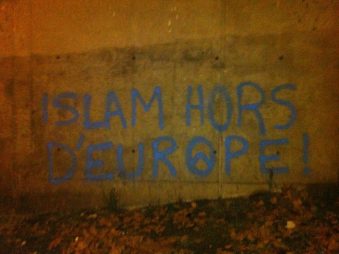 ISLAM HORS
D'EUROPE!